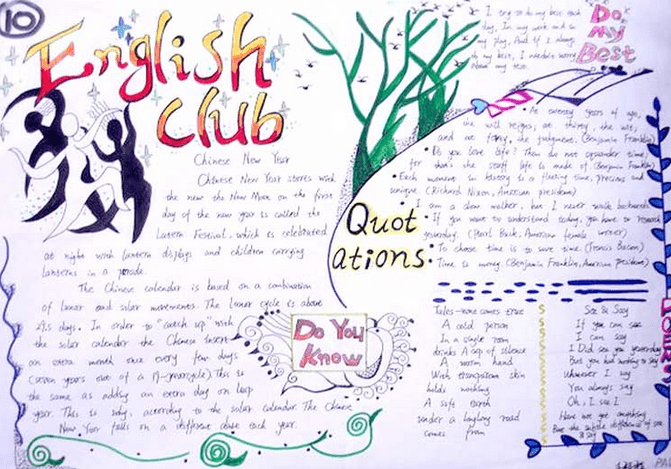 10
English
Club
Chinese New Year
Chinese New Year starts with
the new the New Moon on the first
day of the new year is called the
Lantern Festival, which is celebrated
at night with lantern displays and children carrying
lanterns in a parade.
The Chinese calendar is based on a combination
of lunar and solar movements. The lunar cycle is above
29.5 days. In order to "catch up" with
the solar calendar the Chinese insert
an extra month once every few days
years out of a This is
the same as adding an extra day on leap
year. This is why, according to the solar calendar. The Chinese
New Year falls on a different date each year.
Do You
Know
I try to do my best each
day, In my work and in
my play, And if I always
do my best, I needn't worry
About my
Do
My
Best
Quot
ations:
At twenty years of age,
the will reigns, at thirty, the wit,
and at forty, the judgment. (Benjamin Franklin)
Do you love life? Then do not squander time,
for that's the stuff life is made of (Benjamin Franklin)
Each moment in history is a fleeting time, precious and
unique. (Richard Nixon, American president)
I am a slow walker, but I never walk backwards.
If you want to understand today, you have to research
yesterday. (Pearl Buck, American female)
To choose time is to save time. (Francis Bacon)
Time is money. (Benjamin Franklin, American president)
comes true
A cold person
In a single room
drinks A cup of silence
A warm hand
With skin
holds
A safe earth
under a road
comes from
See & Say
If you can see
I can say
I Did see you yesterday
But you had nothing to say
Whenever I say
You always say
Oh, I see I
Have not got anything
But the subtle difference of see
& say